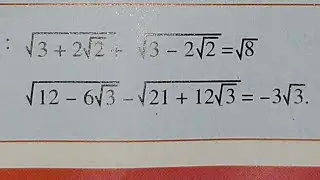 : √(3 + 2√2) + √(3 − 2√2) = √8
√(12 − 6√3) − √(21 + 12√3) = −3√3.